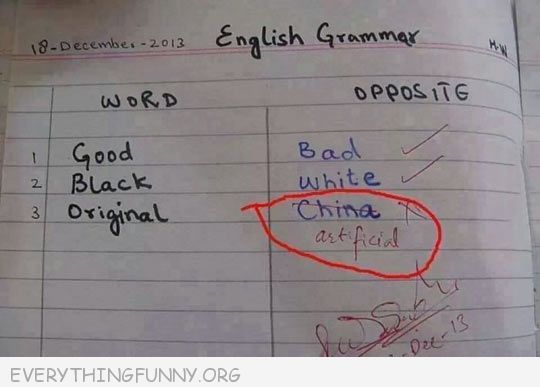 18-December-2013 English Grammar H.W
WORD OPPOSITE
1 Good Bad
2 Black White
3 Original China
artificial
Dec-13
EVERYTHINGFUNNY.ORG